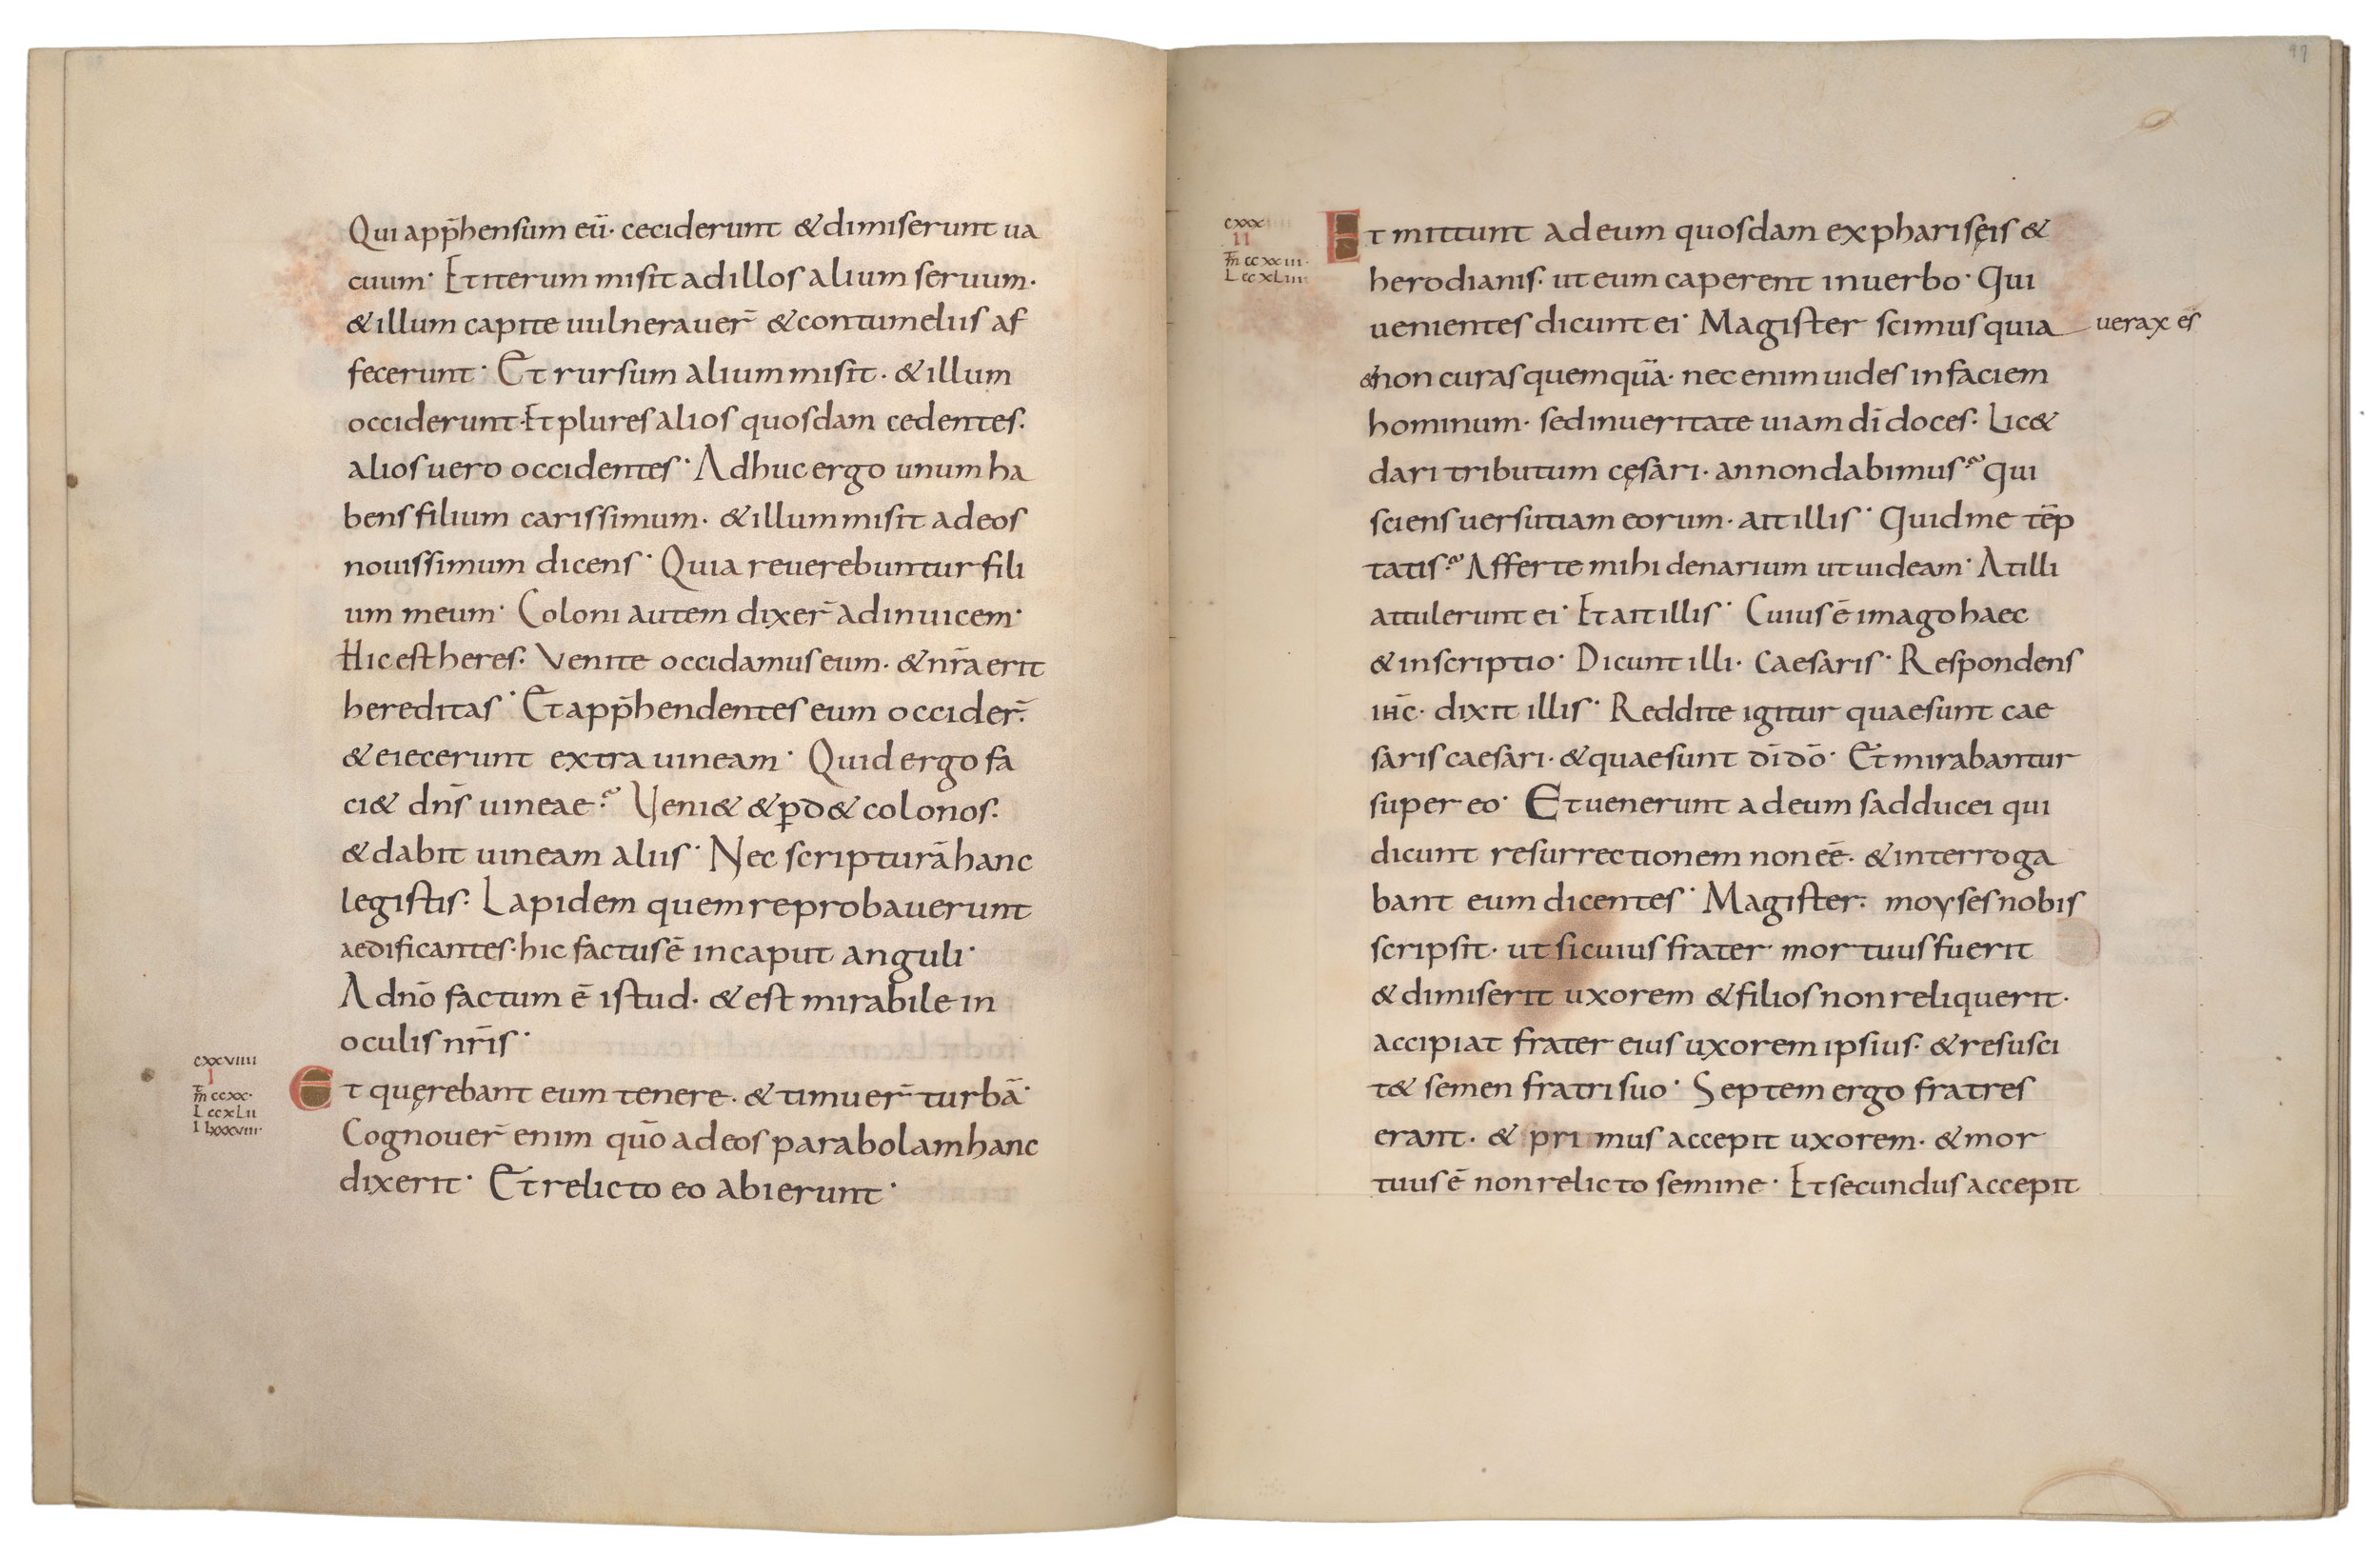 Qui app̄hensum eū· ceciderunt & dimiserunt ua
cuum· Et iterum misit ad illos alium seruum·
& illum capite uulnerauer̄ & contumeliis af
fecerunt· Et rursum alium misit· & illum
occiderunt· Et plures alios quosdam cedentes·
alios uero occidentes· Adhuc ergo unum ha
bens filium carissimum· & illum misit ad eos
nouissimum dicens· Quia reuerebuntur fili
um meum· Coloni autem dixer̄ ad inuicem·
Hic est heres· Venite occidamus eum· & nr̄a erit
hereditas· Et app̄hendentes eum occider̄·
& eiecerunt extra uineam· Quid ergo fa
ci& dn̄s uineae? Veni& & ꝑd& colonos·
& dabit uineam aliis· Nec scripturā hanc
legistis· Lapidem quem reprobauerunt
aedificantes· hic factus ē in caput anguli·
A dnō factum ē istud· & est mirabile in
oculis nr̄is·
cxxviiii
I
m̄ ccxx·
L ccxLii
I Lxxxviii·
Et quęrebant eum tenere· & timuer̄ turbā·
Cognouer̄ enim quō ad eos parabolam hanc
dixerit· Et relicto eo abierunt·
97
cxxx
II
m̄ ccxxiii·
L ccxLiii
Et mittunt ad eum quosdam ex phariseis &
herodianis· ut eum caperent in uerbo· Qui
uenientes dicunt ei· Magister scimus quia uerax es
& non curas quemquā· nec enim uides in faciem
hominum· sed in ueritate uiam dī doces· Lic&
dari tributum cęsari· an non dabimus? Qui
sciens uersutiam eorum· ait illis· Quid me tēp
tatis? Afferte mihi denarium ut uideam· At illi
attulerunt ei· Et ait illis· Cuius ē imago haec
& inscriptio· Dicunt illi· Caesaris· Respondens
ihc̄· dixit illis· Reddite igitur quae sunt cae
saris caesari· & quae sunt dī dō· Et mirabantur
super eo· Et uenerunt ad eum sadducei qui
dicunt resurrectionem non eē· & interroga
bant eum dicentes· Magister· moyses nobis
scripsit· ut si cuius frater mortuus fuerit
& dimiserit uxorem & filios non reliquerit·
accipiat frater eius uxorem ipsius· & resusci
t& semen fratri suo· Septem ergo fratres
erant· & primus accepit uxorem· & mor
tuus ē non relicto semine· Et secundus accepit